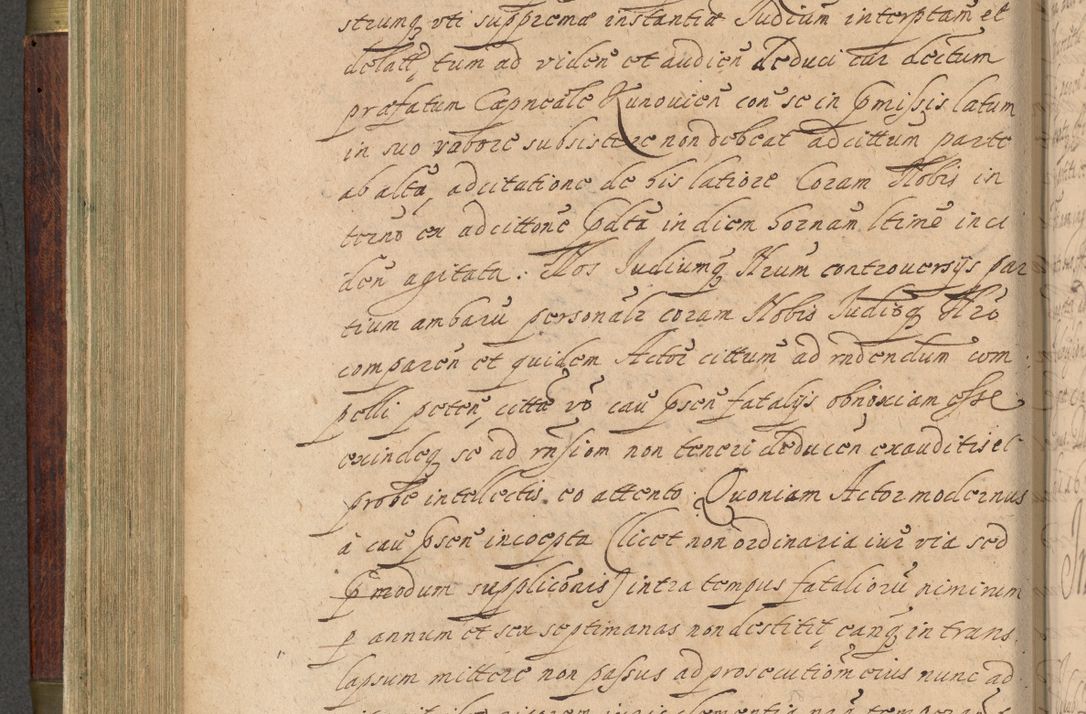 strumq̃ vti suppremæ instantiæ Iudium̃ interptam̃ et
delatt̃, tum ad viden̄ et audien̄ deduci cur decitum
præfatum Capneale Kunovien̄ con se in p̃missis latum
in suo robore subsistere non debeat adcittum̄ parte
ab altã, adcitatione de his latiore Coram Nobis in
ternō ex adcittone p̃data in diem hornam̃ ltime inci
den̄ agitata. Nos Iudiumq̃ Nrum controuersijs par
tium ambaru̅ personalr coram Nobis Iudioq̃ Nrō
comparen̄ et quidem Actore cittum̄ ad rndendum com
pelli peten̄, citta vō cau p̃sen̄ fatalijs obnoxiam esse
exindeq̃ se ad rn̄siom non teneri deducen̄ exauditis et
probe intellectis eo attento. Quoniam Actor modernus
à cau p̃sen̄ incoepta (licet non ordinaria iur via sed
p̃ modum suppliconis) intra tempus fatalioru̅ nimirum
p annum et sex septimanas non destitit, eamq̃ in trans
lapsum mittere non passus ad prosecutiom̃ eius nunc ad